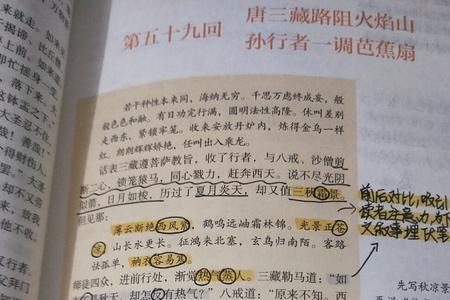 第五十九回
唐三藏路阻火焰山
孙行者一调芭蕉扇
若干种性本来同，海纳无穷。千思万虑终成妄，般
般色色和融。有日功完行满，圆明法性高隆。休叫差别
走西东，紧锁牢笼。收来安放丹炉内，炼得金乌一样
红。朗朗辉辉娇艳，任叫出入乘龙。
话表三藏遵菩萨教旨，收了行者，与八戒、沙僧剪
断二心，锁笼猿马，同心戮力，赶奔西天。说不尽光阴
似箭，日月如梭，历过了夏月炎天，却又值三秋霜景。
但见那：
薄云断绝西风紧，鹤鸣远岫霜林锦。光景正苍
凉，山长水更长。征鸿来北塞，玄鸟归南陌。客路
怯孤单，衲衣容易寒。
师徒四众，进前行处，渐觉热气蒸人。三藏勒马道：“如
今正是秋天，却怎又有热气？”八戒道：“原来不知。西
前后对比，吸引
读者注意力，为下
文故事埋伏笔
先写秋凉景
就走。如来
上前。如来